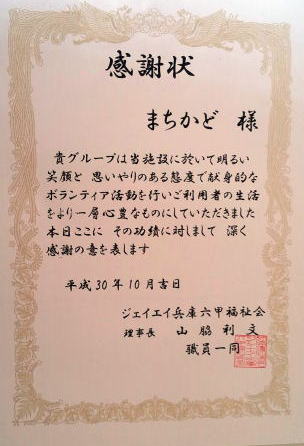 感謝状
まちかど 様
貴グループは当施設に於いて明るい
笑顔と 思いやりのある態度で献身的な
ボランティア活動を行いご利用者の生活
をより一層心豊なものにしていただきました
本日ここに その功績に対しまして 深く
感謝の意を表します
平成30年10月吉日
ジェイエイ兵庫六甲福祉会
理事長 山脇利文
職員一同